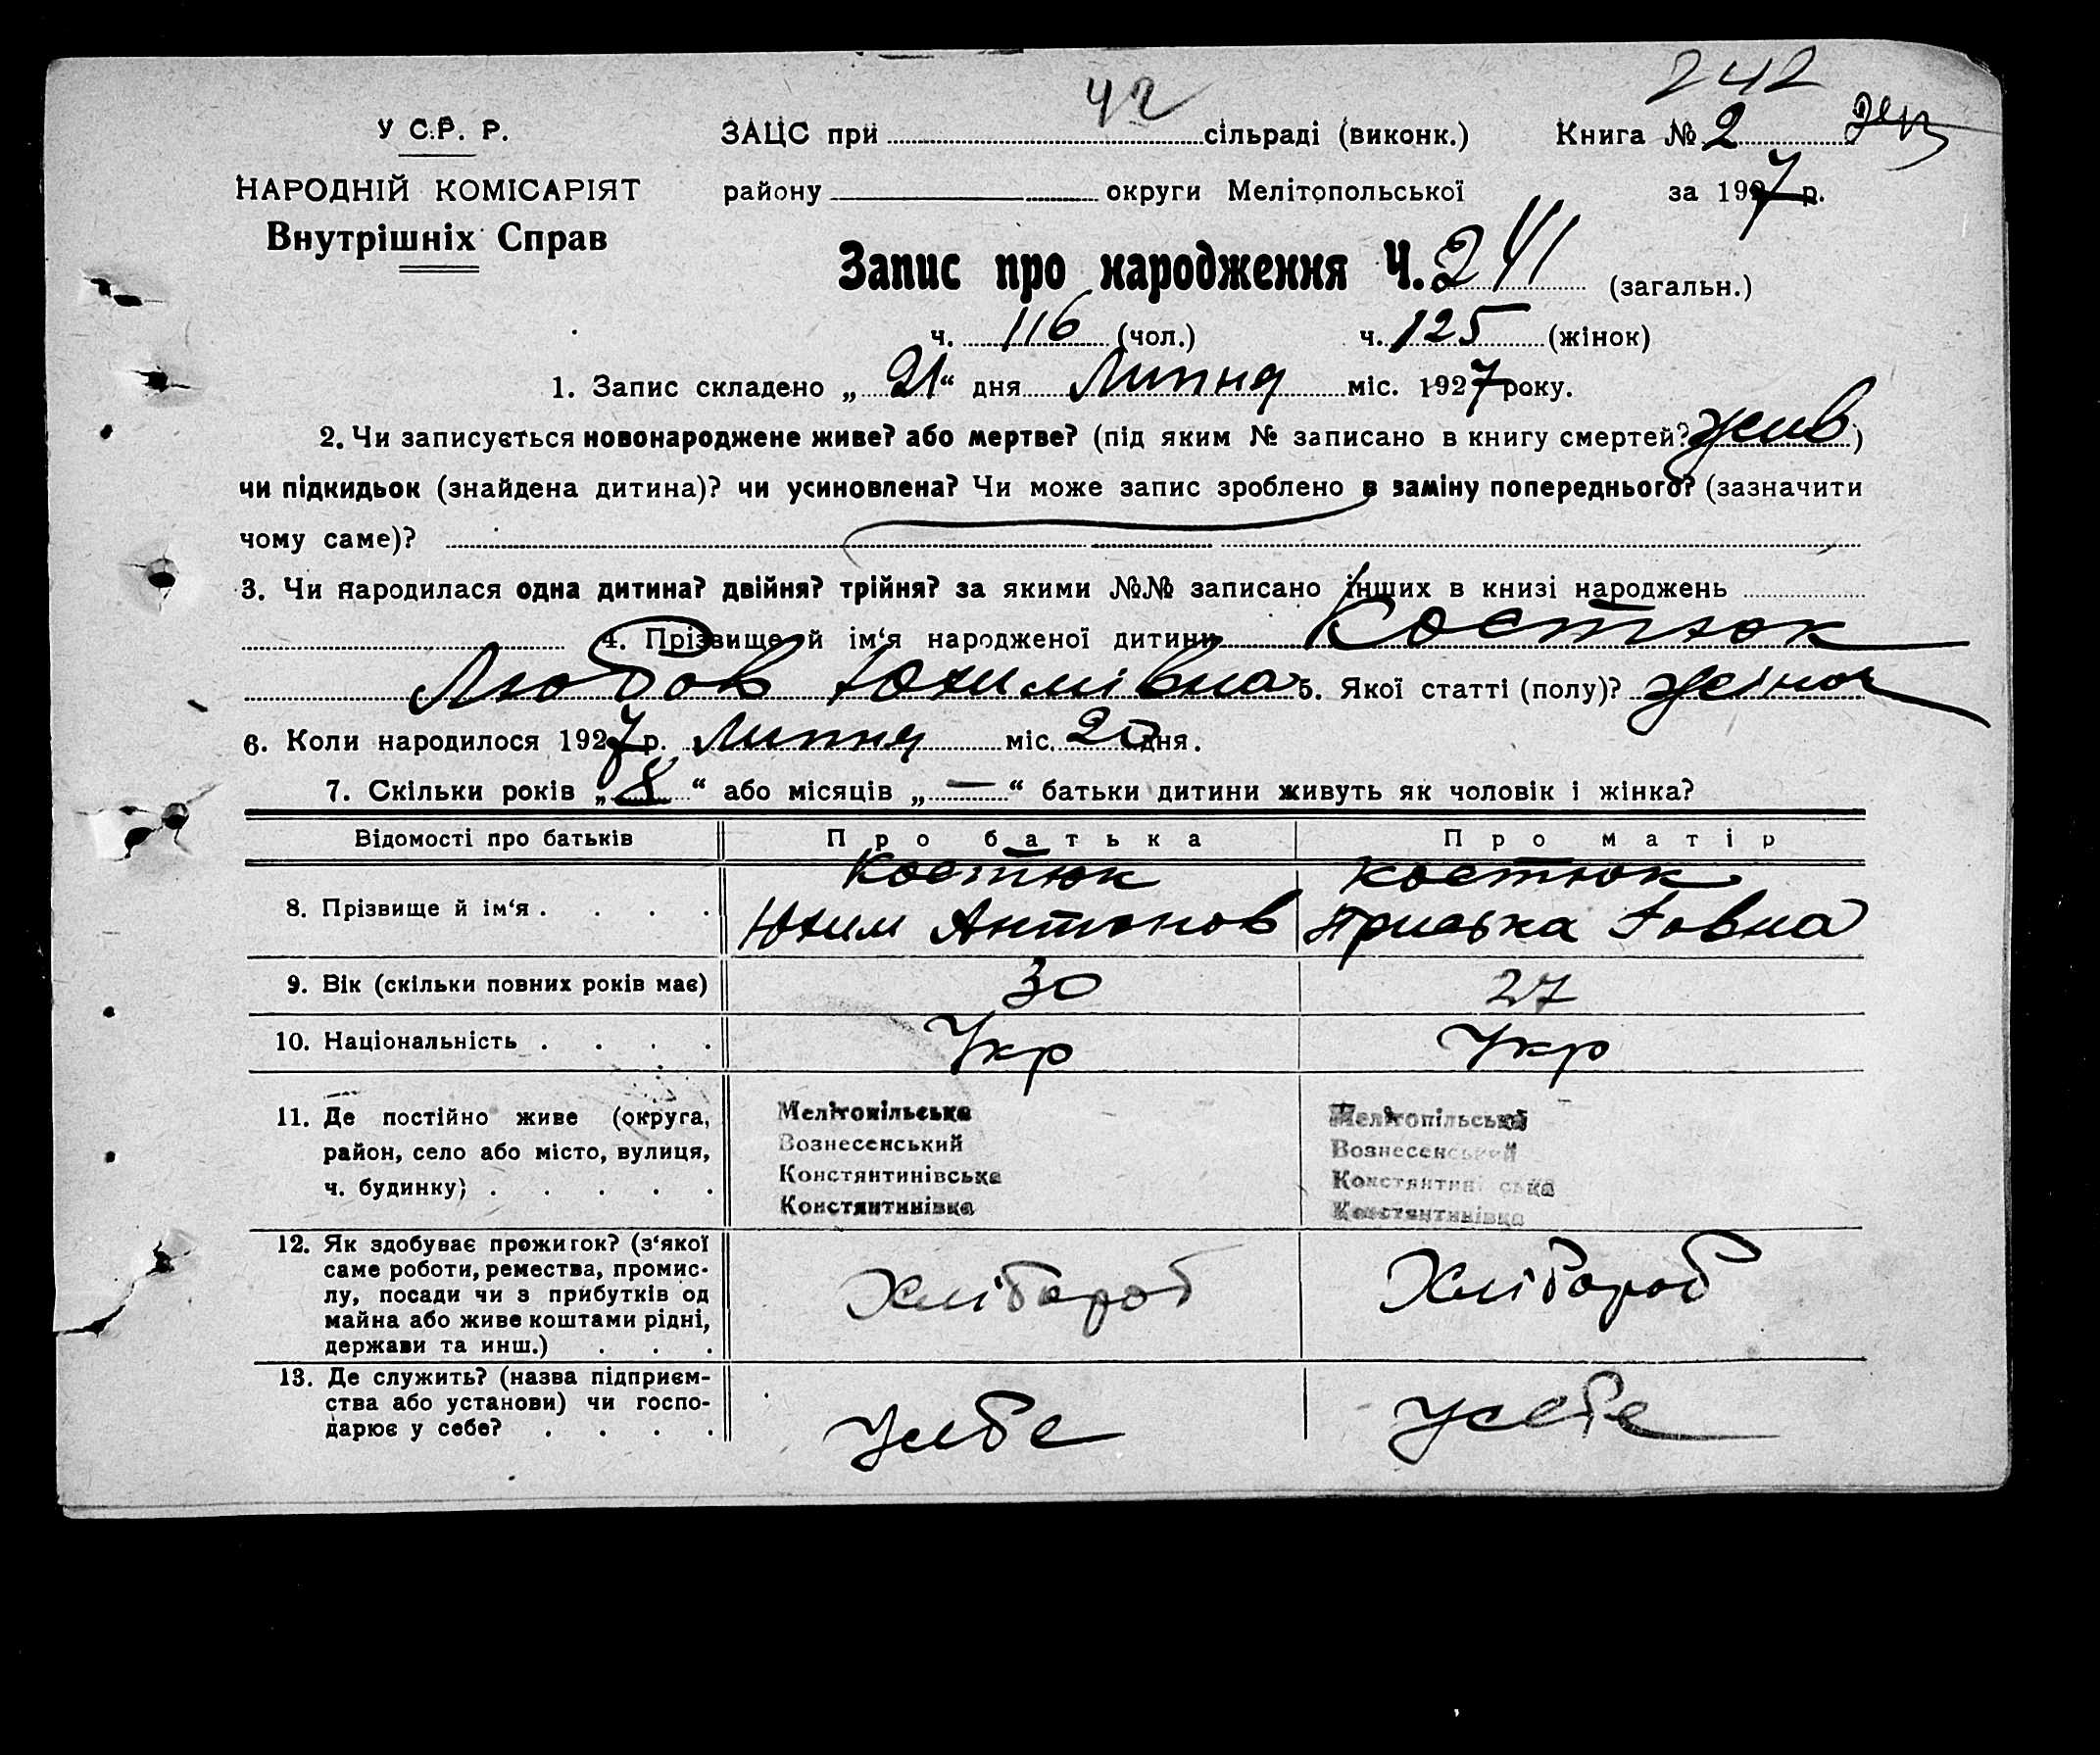 242
42
У С.Р. Р.
ЗАЦС при сільраді (виконк.) Книга № 2
НАРОДНІЙ КОМІСАРІЯТ
району округи Мелітопольської за 1927 р.
Внутрішніх Справ
Запис про народження Ч. 241 (загальн.)
ч. 116 (чол.) ч. 125 (жінок)
1. Запис складено „21“ дня Липня міс. 1927 року.
2. Чи записується новонароджене живе? або мертве? (під яким № записано в книгу смертей? жив)
чи підкидьок (знайдена дитина)? чи усиновлена? Чи може запис зроблено в заміну попереднього? (зазначити
чому саме)?
3. Чи народилася одна дитина? двійня? трійня? за якими №№ записано інших в книзі народжень
4. Прізвище й ім‘я народженої дитини Костюк
Любов Юхимівна 5. Якої статті (полу)? жіноч
6. Коли народилося 1927 р. Липня міс. 20 дня.
7. Скільки років „8“ або місяців „—“ батьки дитини живуть як чоловік і жінка?
Відомості про батьків Про батька Про матір
8. Прізвище й ім‘я . . . .
Костюк
Юхим Антонов
Костюк
Приська Іовна
9. Вік (скільки повних років має) 30 27
10. Національність . . . . Укр Укр
11. Де постійно живе (округа,
район, село або місто, вулиця,
ч. будинку) . . . . .
Мелітопільська
Вознесенський
Констянтинівська
Констянтинівка
Мелітопільська
Вознесенський
Констянтинівська
Констянтинівка
12. Як здобуває прожиток? (з‘якої
саме роботи, ремества, промис-
лу, посади чи з прибутків од
майна або живе коштами рідні,
держави та инш.) . . .
Хлібороб
Хлібороб
13. Де служить? (назва підприєм-
ства або установи) чи госпо-
дарює у себе? . . . .
У себе
У себе